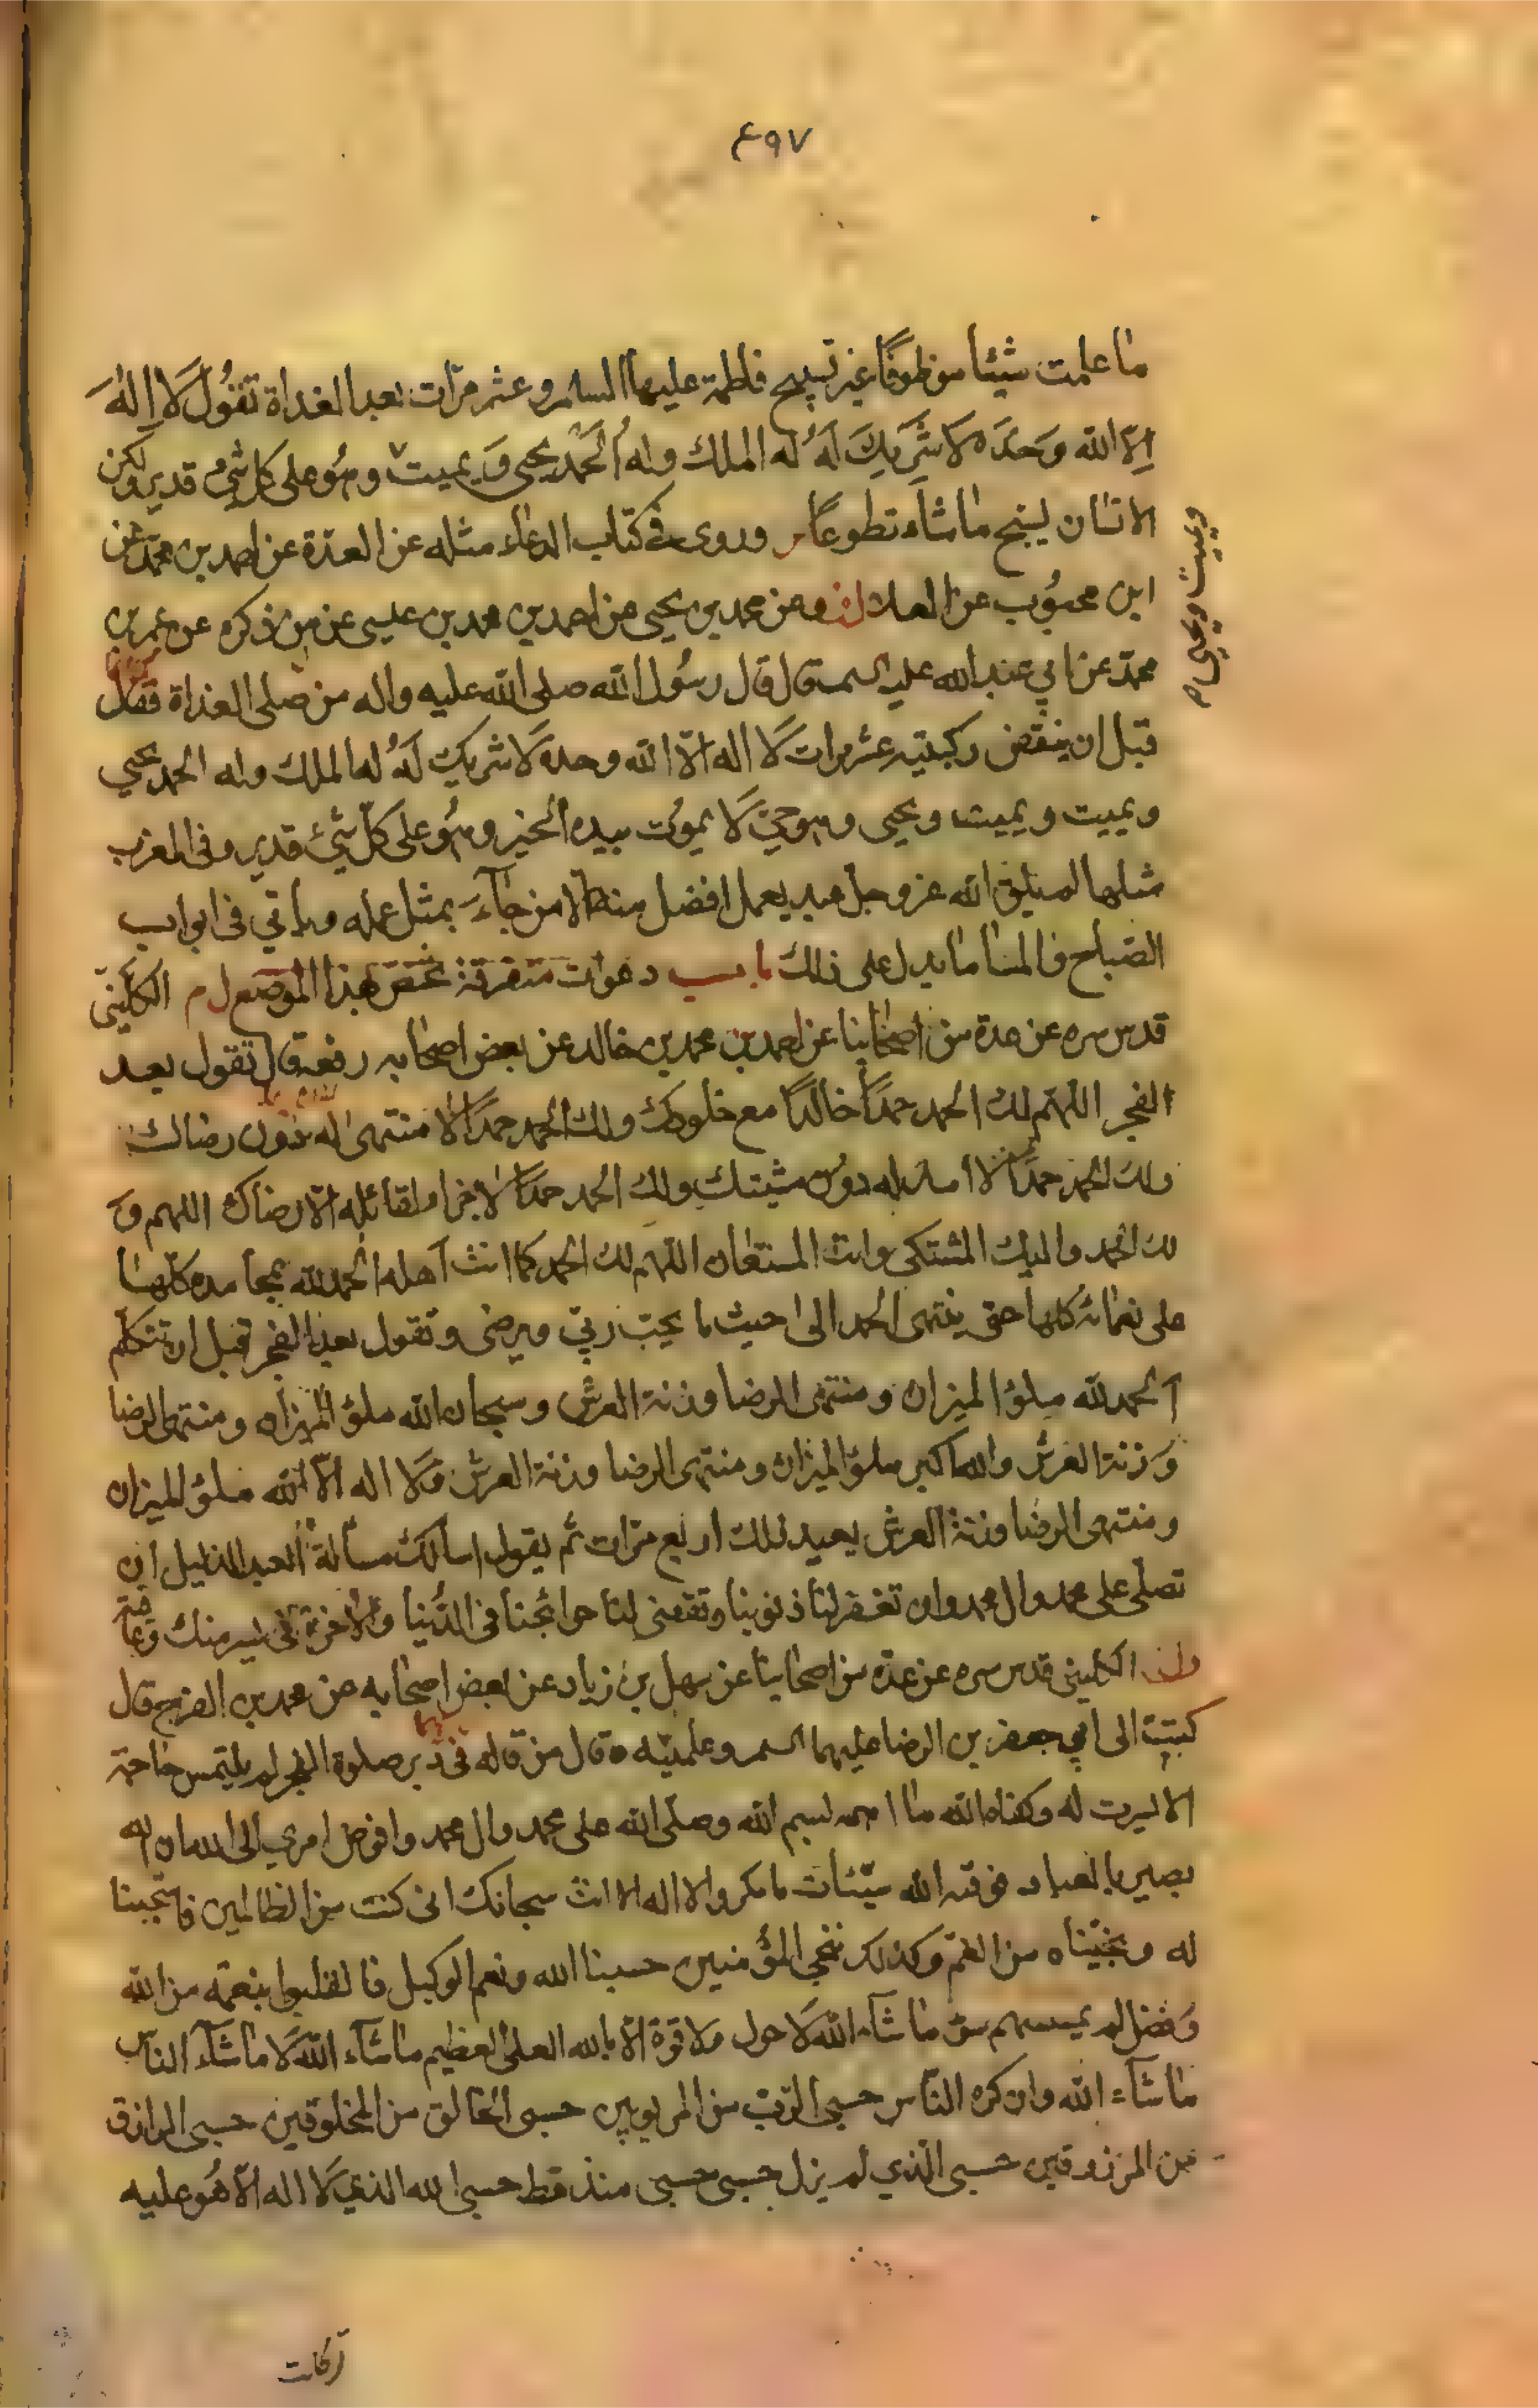 ۴۹۷
ما علمت شيئا موظوفًا غير تسبيح فاطمة عليها السلم وعشر مرّات بعد الغداة تقُول لَا اِلٰهَ
اِلّا الله وَحدَه لا شَريكَ لَهُ له الملك وله الحَمد يحيى وَيميت وهُو على كل شئ قدير ولكن
الانسان يسبح ما شاء تطوعًا وروى في كتاب الدعاء مثله عن العدّة عن احمد بن محمّد عن
ابن محبُوب عن العلا وعن محمد بن يحيى عن احمد بن محمد بن عيسى عن من ذكره عن عمر بن
محمّد عن ابي عبد الله عليه السم قال قال رسُول الله صلى الله عليه واله من صلى الغداة فقال
قبل ان ينقض ركبتيه عشر مرات لَا اله الّا الله وحده لَا شريك لَهُ له الملك وله الحمد يحيي
ويميت ويميت ويحيى وهو حيّ لَا يموُت بيده الخير وهُو على كلّ شئ قدير وفى المغرب
مثلها لم يلق الله عز وجل عبد بعمل افضل من عمله الا من جآءَ بمثل عمله وياتي فى ابواب
الصّباح والمسا ما يدل على ذلك باب دعوات متفرقة تختص بهذا الموضع ل م الكلينيّ
قدس سره عن عدة من اصحابنا عن احمد بن محمد بن خالد عن بعض اصحابه رفعه قال تقول بعد
الفجر اللهّم لك الحمد حمدًا خالدًا مع خلودك ولك الحمد حمدًا لا منتهى له دون رضاك
ولك الحمد حمدًا لا امد له دون مشيتك ولك الحمد حمدًا لا جزاء لقائله الّا رضاك اللهم وَ
لك الحمد واليك المشتكى وانت المستعان اللهّم لك الحمد كما انت آهله الحمد لله بمحامده كلّها
على نعمائه كلها حتى ينتهى الحمد الى حيث ما يحبّ ربّي ويرضى وتقول بعد الفجر قبل ان تتكلّم
آلحمد لله ملؤ الميزان ومنتهى الرضا وزنة العرش وسبحان الله ملؤ الميزان ومنتهى الرضا
وَزنة العرش والله اكبر ملؤ الميزان ومنتهى الرضا وزنة العرش وَلا اله الّا الله ملؤ الميزان
ومنتهى الرضا وزنة العرش يعيد ذلك اربع مرّات ثم يقول اسالك مسالة العبد الذليل ان
تصلّى على محمد وال محمد وان تغفر لنا ذنوبنا وتقضى لنا حوائجنا فى الدُّنيا والاخرة فى يسر منك وعافية
الكلينى قدس سره عن عدّه من اصحابنا عن سهل بن زياد عن بعض اصحابه عن محمد بن الفرج قال
كتبت الى ابي جعفر بن الرضا عليهما السم وعلمنيه وقال من قاله فى دُبر صلوة الفجر لم يلتمس حاجة
الا يسرت له وكفاه الله ما اهمه بسم الله وصلّى الله على محمد وال محمد وافوض امري الى الله ان الله
بصير بالعباد فوقه الله سيّئات ما مكروا لا اله الا انت سبحانك انى كنت من الظالمين فاستجبنا
له ونجّيناه من الغمّ وكذلك ننجي المؤمنين حسبنا الله ونعم الوكيل فانقلبوا بنعمة من الله
وَفضل لم يمسسهم سؤ ما شآء الله لَا حول ولا قوة الّا بالله العلى العظيم ما شآء اللهُ لَا ما شآءَ الناس
ما شآء الله وان كره النّاس حسبى الرّب من المربوبين حسبى الخالق من المخلوقين حسبى الرازق
من المرزوقين حسبى الذي لم يزل حسبى حسبى منذ قط حسبى الله الذي لَا اله الّا هُو عليه
ويميت ويحيي م